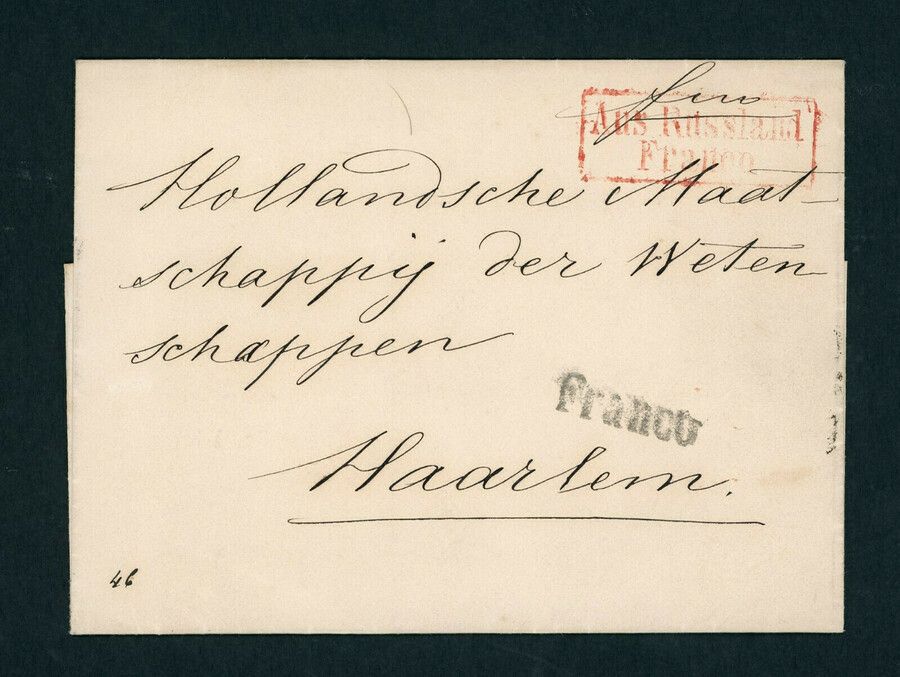 Aus Russland
Franco
Hollandsche Maat-
schappij der Weten
schappen
Franco
Haarlem.
46